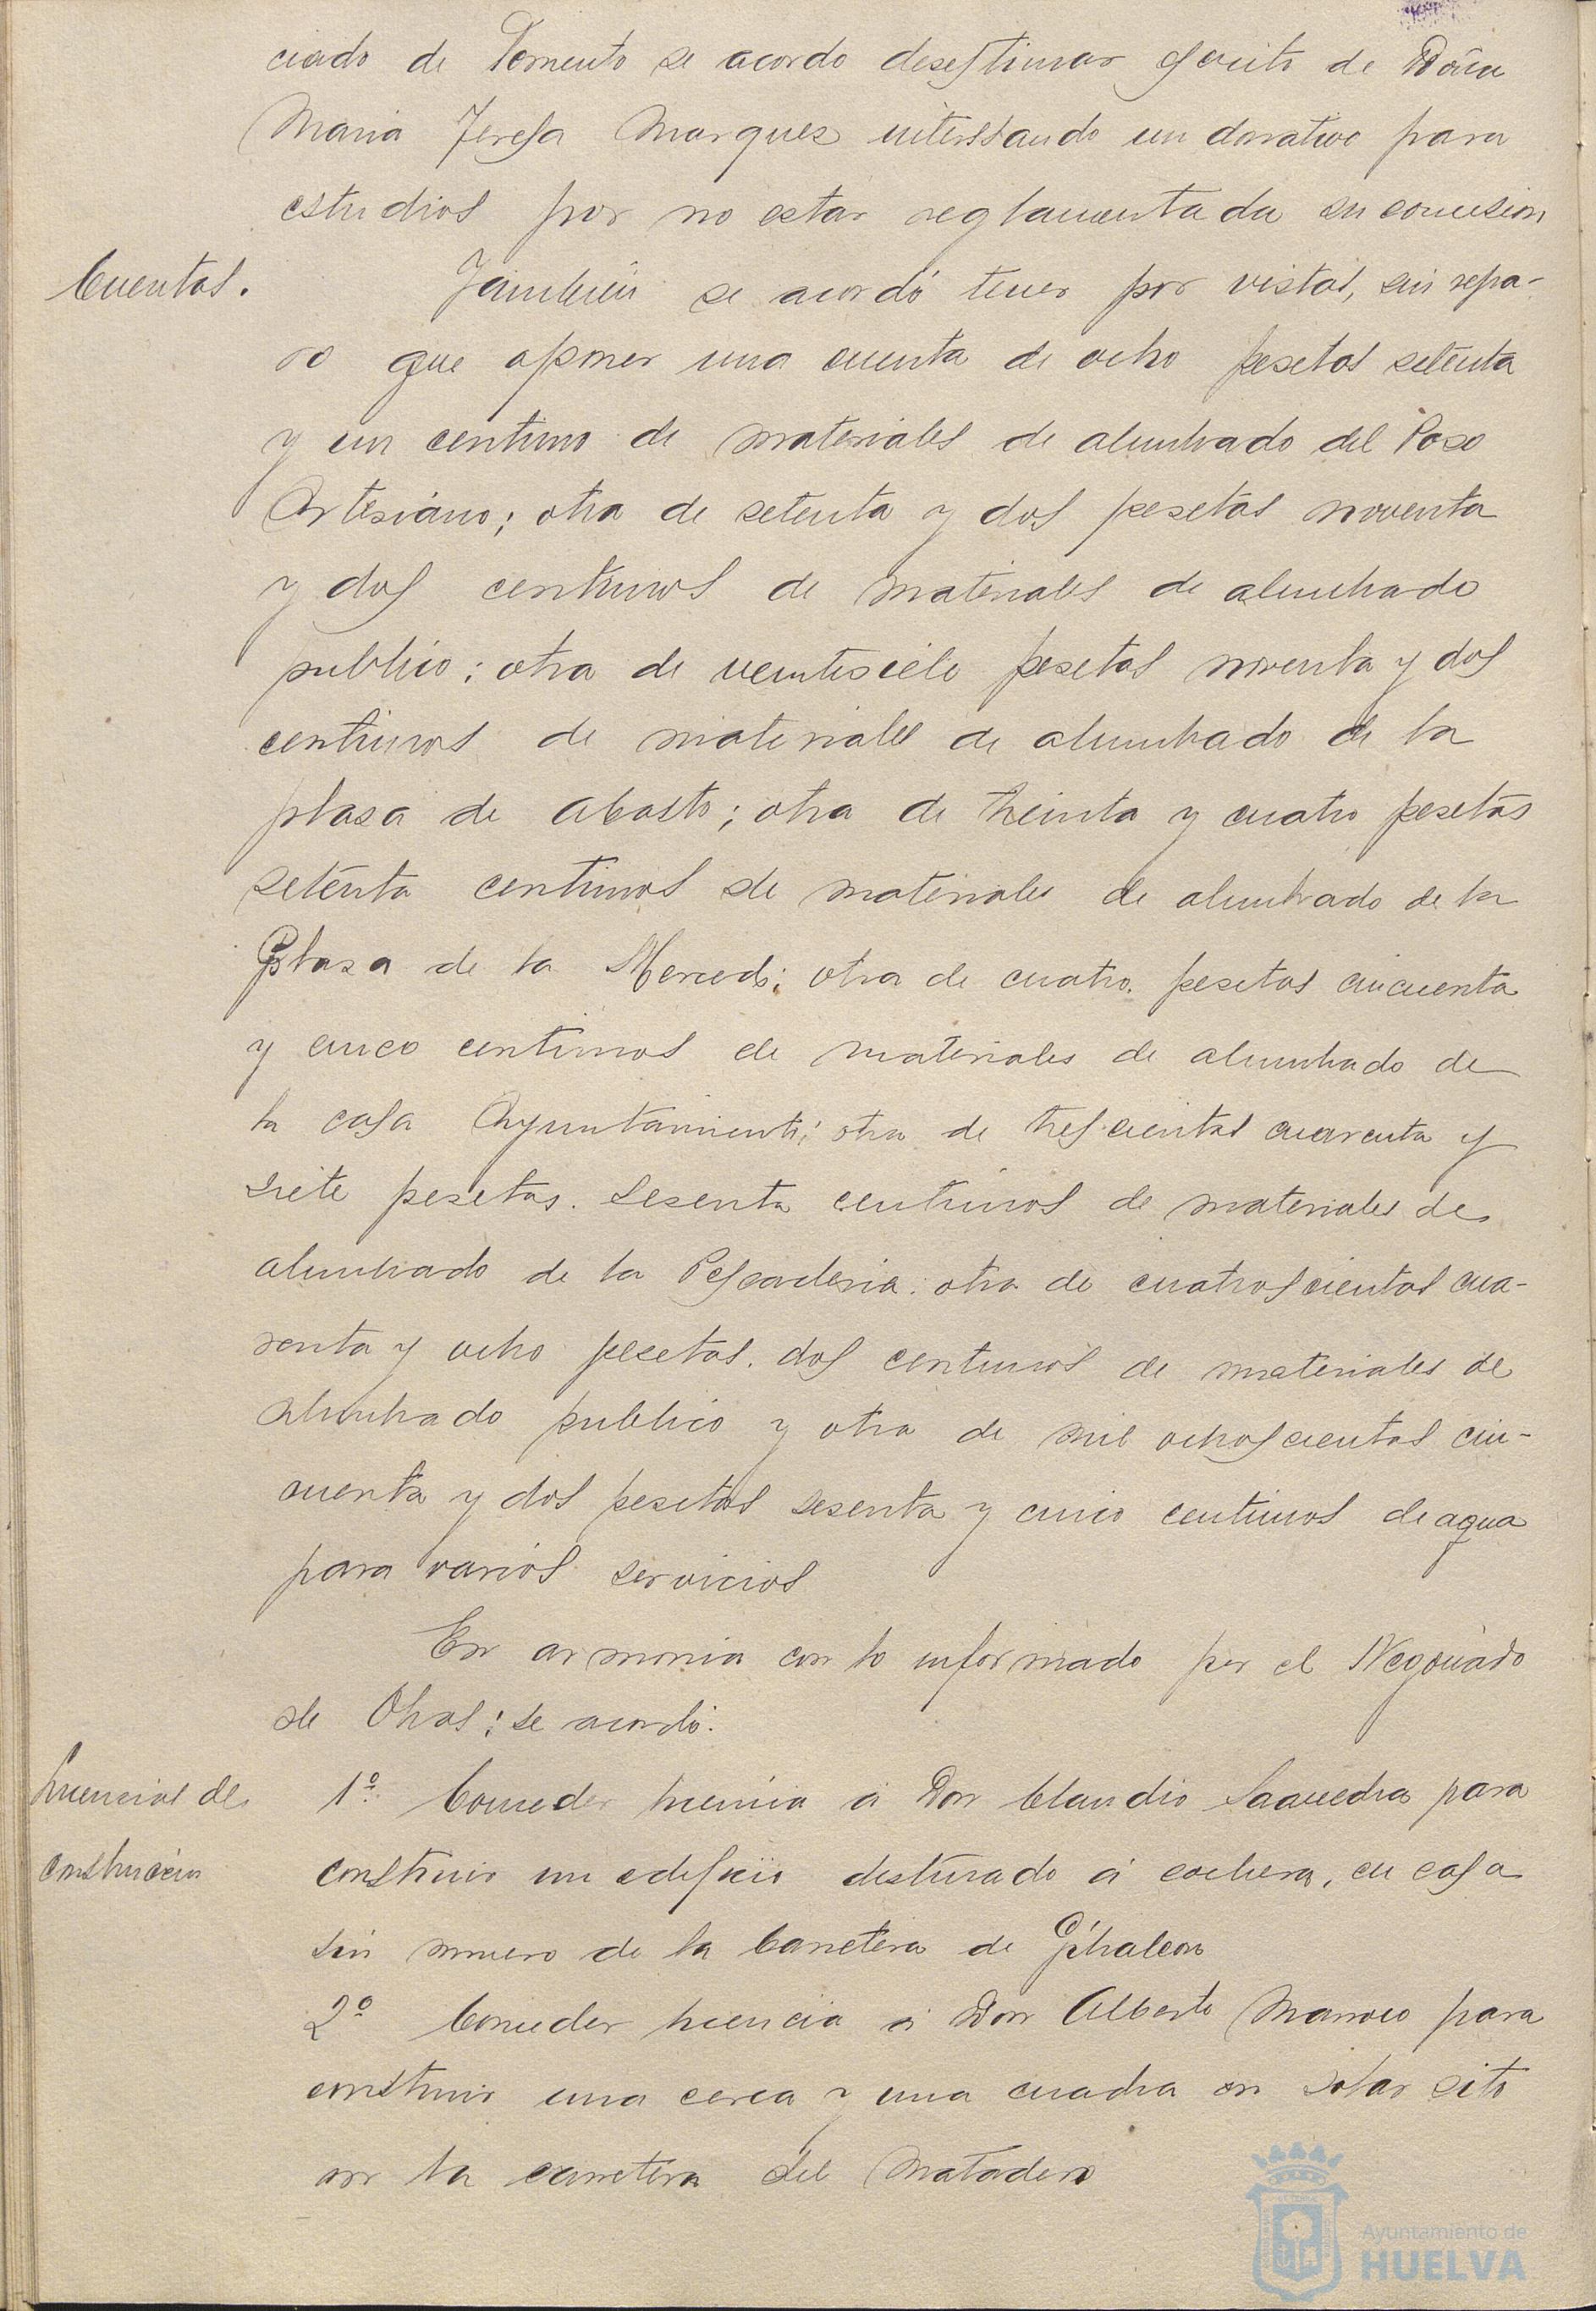 ciado de Fomento se acordo desestimar escrito de Doña
Maria Teresa Marquez interesando un donativo para
estudios por no estar reglamentada su concesion
Cuentas.
Tambien se acordó tener por vistas, sin repa-
ro que oponer una cuenta de ocho pesetas setenta
y un centimo de materiales de alumbrado del Poso
Artesiano; otra de setenta y dos pesetas noventa
y dos centimos de materiales de alumbrado
publico; otra de veintisiete pesetas noventa y dos
centimos de materiales de alumbrado de la
plasa de Abasto; otra de treinta y cuatro pesetas
setenta centimos de materiales de alumbrado de la
Plasa de la Merced; otra de cuatro pesetas cincuenta
y cinco centimos de materiales de alumbrado de
la casa Ayuntamiento; otra de trescientas cuarenta y
siete pesetas sesenta centimos de materiales de
alumbrado de la Pescaderia; otra de cuatroscientas cua-
renta y ocho pesetas dos centimos de materiales de
alumbrado publico y otra de mil ochoscientas cin-
cuenta y dos pesetas sesenta y cinco centimos de agua
para varios servicios
En armonia con lo informado por el Negociado
de Obras; se acordó:
Licencias de
construccion
1º Conceder licencia a Don Claudio Saavedra para
construir un edificio destinado á cochera, en casa
sin numero de la Carretera de Gibraleon
2º Conceder licencia a Don Alberto Marroco para
construir una cerca y una cuadra en solar sito
en la carretera del Matadero
Ayuntamiento de
HUELVA